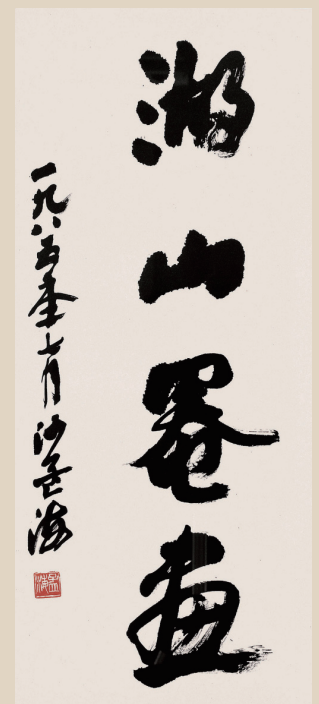 湖山罨畫
一九八五年七月沙孟海